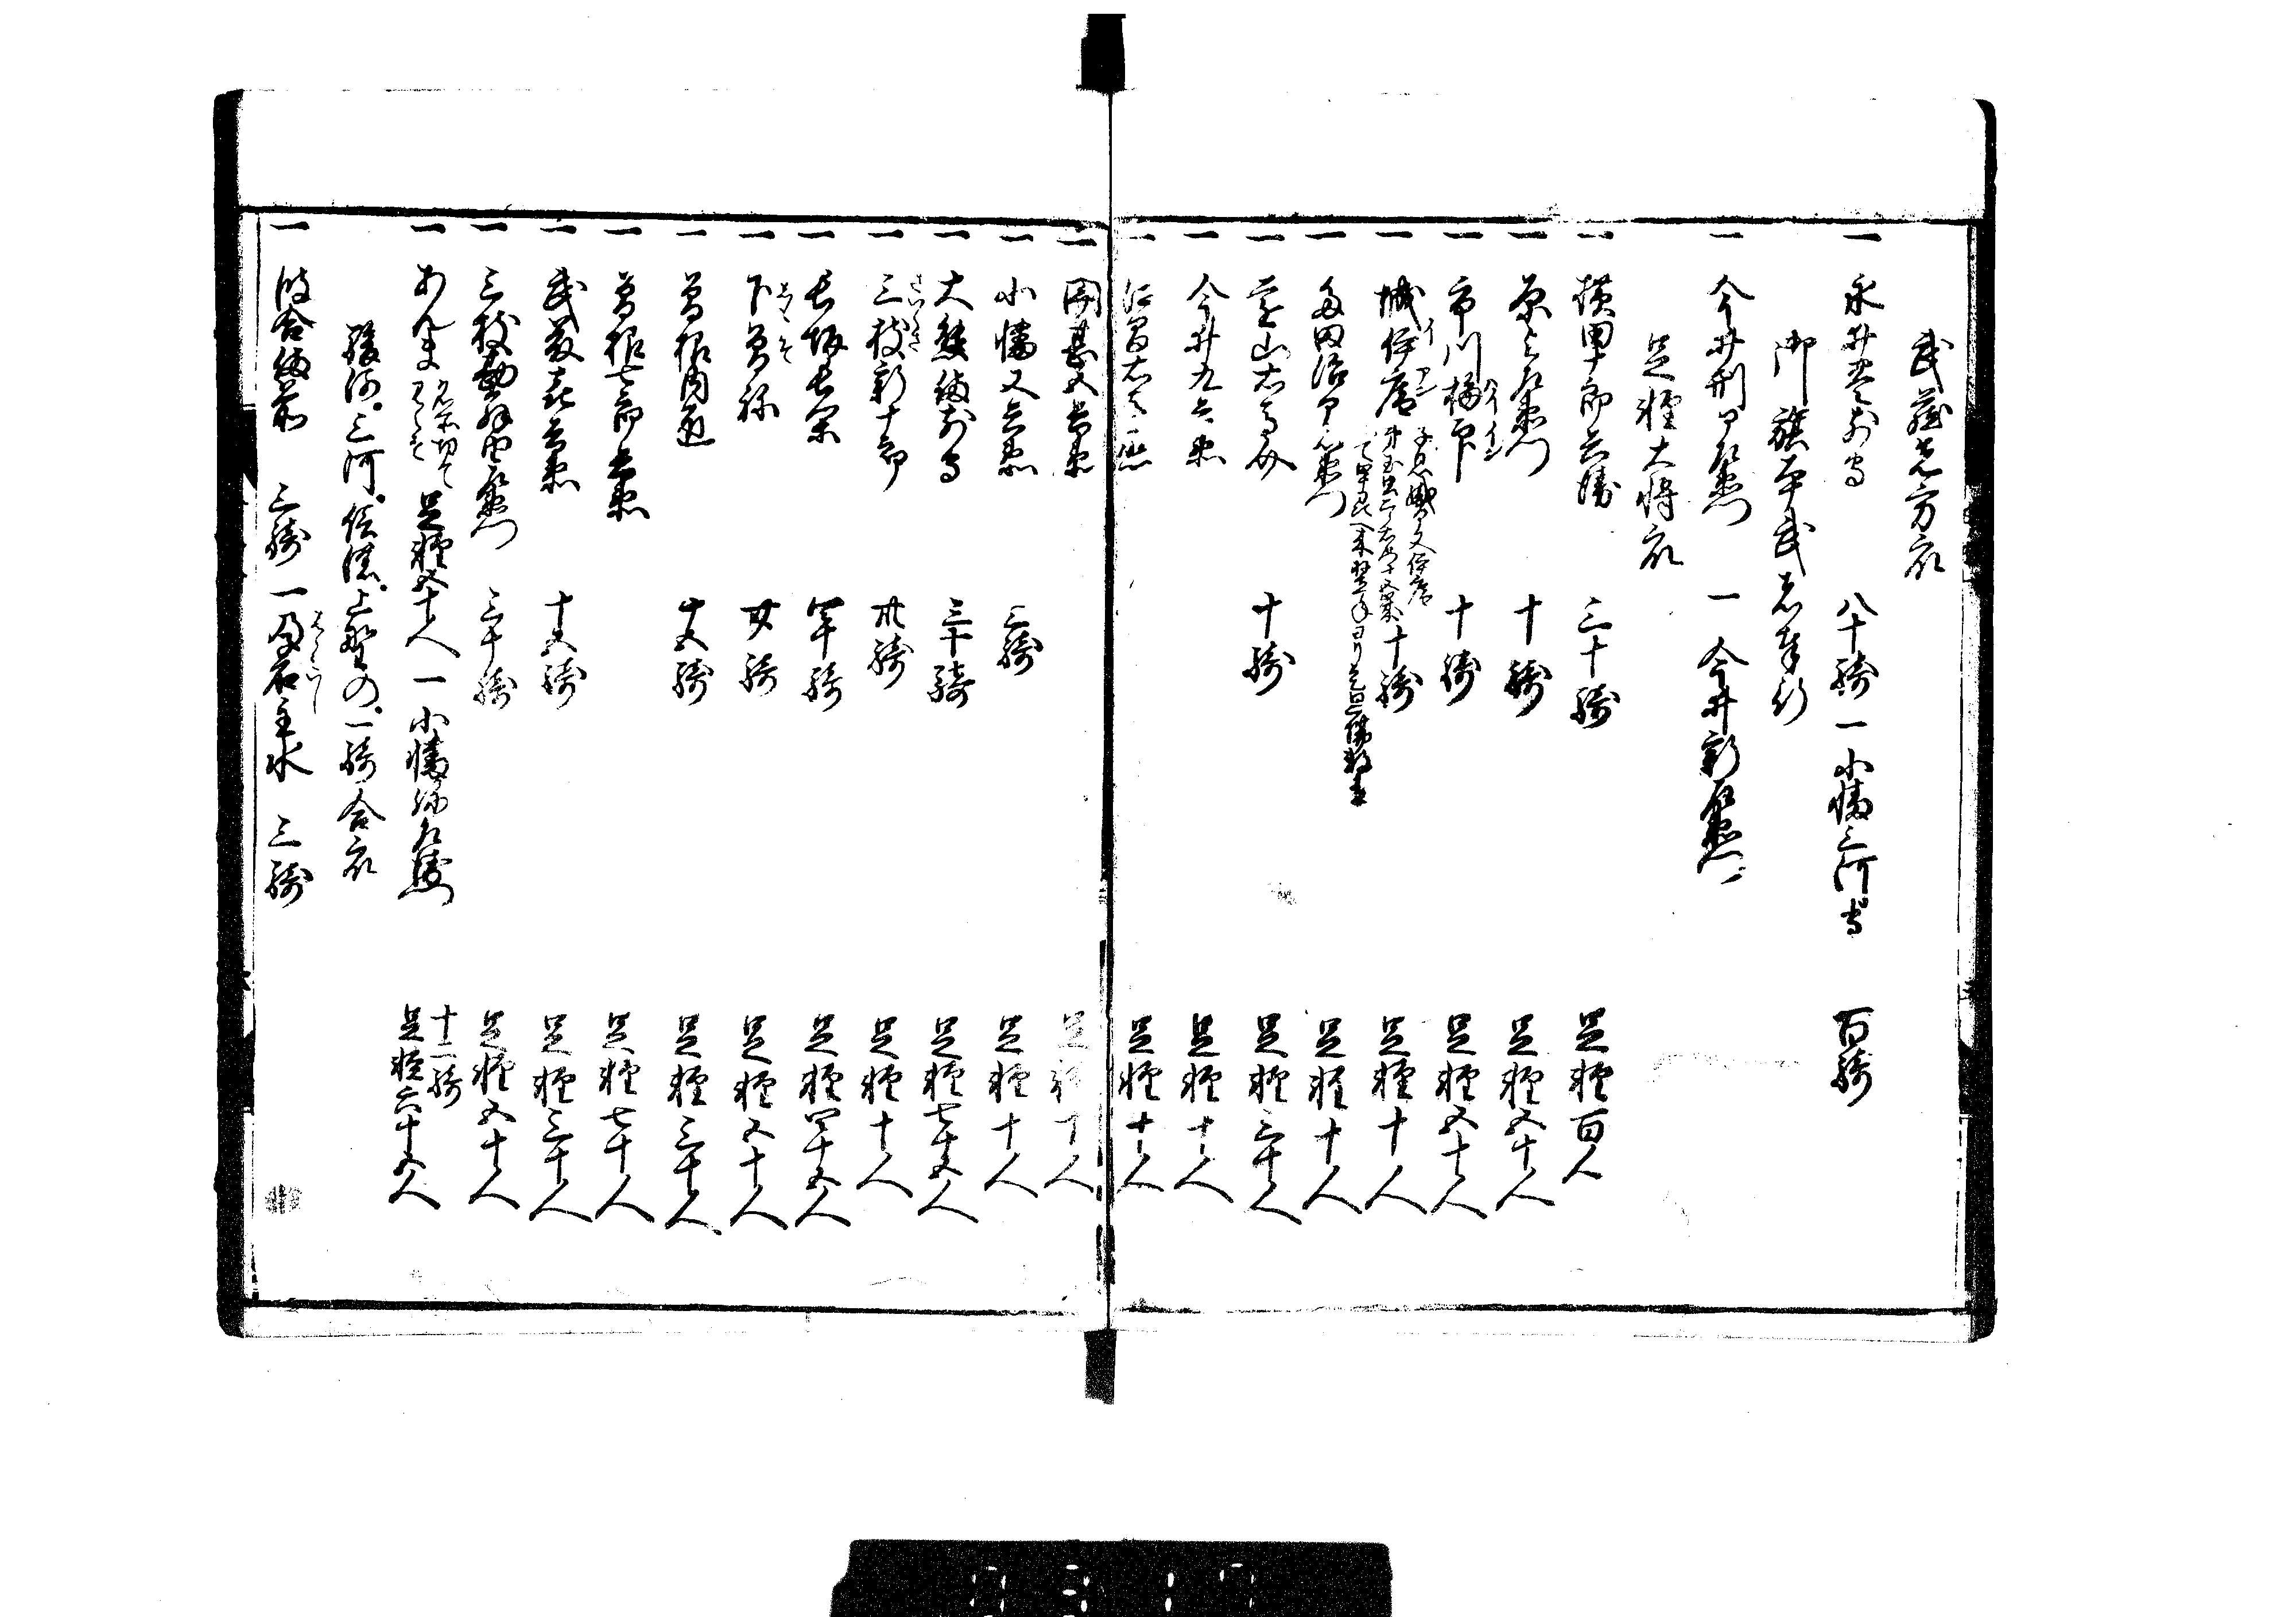 武蔵先方衆
一 永井豊前守 八十騎 一 小幡三河守 百騎
御旗本武者奉行
一 今井刑部左衛門 一 今井新左衛門
足軽大将衆
一 横田十郎兵衛 三十騎 足軽百人
一 原与左衛門 十騎 足軽五十人
一 市川梅印 十騎 足軽五十人
一 城伊庵 十騎 足軽十人
一 多田治部左衛門 足軽十人
一 遠山右馬介 十騎 足軽三十人
一 今井九兵衛 足軽十人
一 江間右馬丞 足軽十人
一 関甚五兵衛 足軽十人
一 小幡又兵衛 三騎 足軽十人
一 大熊備前守 三十騎 足軽七十五人
一 三枝新十郎 卅騎 足軽十人
一 長坂長閑 四十騎 足軽四十五人
一 下曽祢 廿騎 足軽五十人
一 曽根内匠 十五騎 足軽三十人
一 曽根七郎兵衛 足軽七十人
一 武藤喜兵衛 十五騎 足軽三十人
一 三枝勘解由左衛門 三十騎 足軽五十人
一 あんま 足軽五十人 一 小幡弥左衛門 十二騎 足軽六十五人
駿河、三河、信濃、上野の、一騎合衆
一 落合備前 三騎 一 尾石主水 三騎